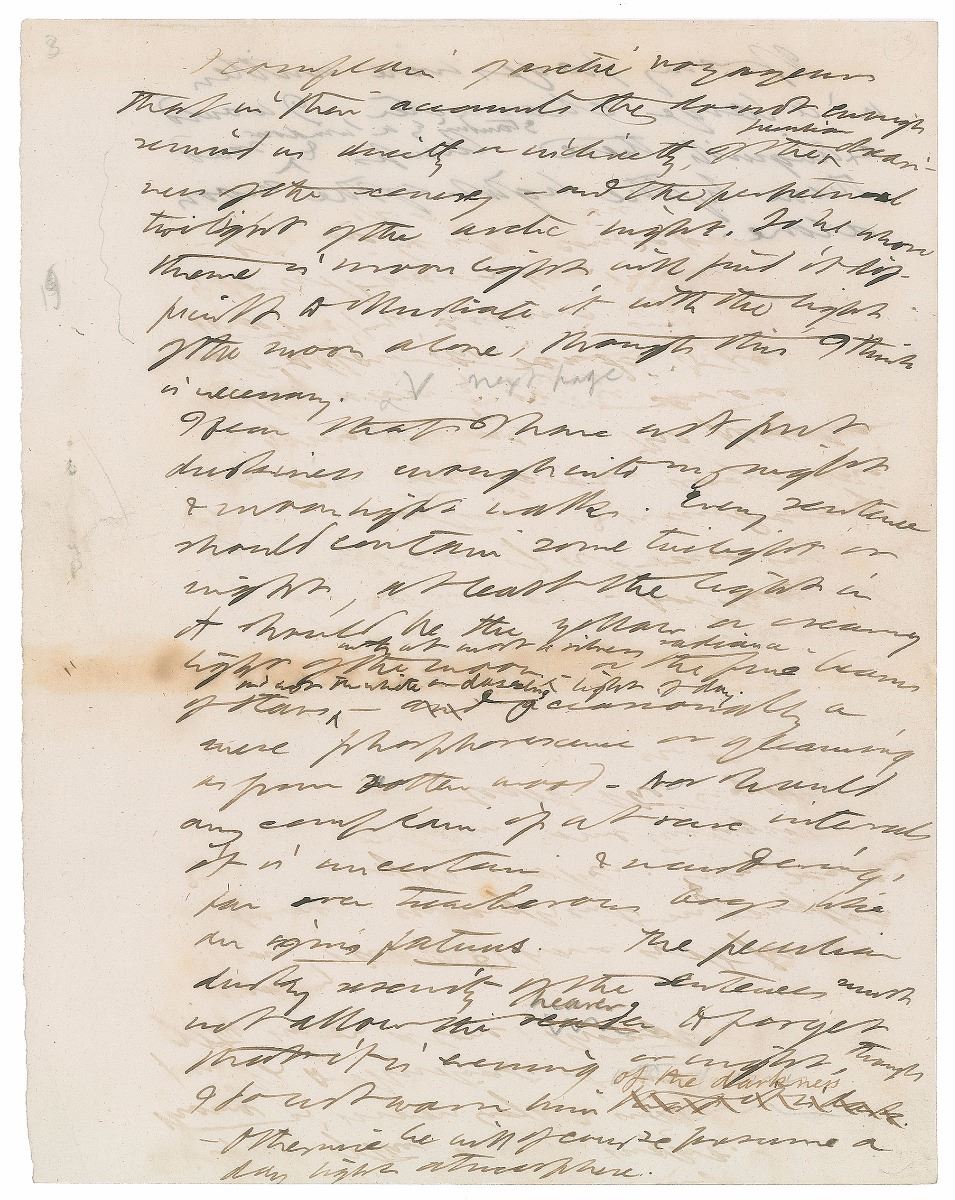 3
I complain of arctic voyagers
that in their accounts they do not enough
remind us directly or indirectly, of the ^ peculiar dreari-
ness of the scenery – and the perpetual
twilight of the arctic night. So he whose
theme is moonlight will find it dif-
ficult to illustrate it with the light
of the moon alone, though this I think
is necessary.
V next page
I fear that I have not put
duskiness enough into my night
& moonlight walks. Every sentence
should contain some twilight or
night, at least the light in
it should be the yellow or creamy
light of the moon or the fine beams
with at most a silvery radiance
of stars, ^ – and occasionally a
and not the white or dazzling light of day
mere phosphorescence or gleaming
as from rotten wood – nor would
any complain if at rare intervals
it is uncertain & wandering,
far over treacherous bogs, like
an ignis fatuus. The peculiar
dusky serenity of the sentences must
not allow the reader hearer to forget
that it is evening or night, though
I do not warn him of the darkness
– Otherwise he will of course presume a
day light atmosphere.